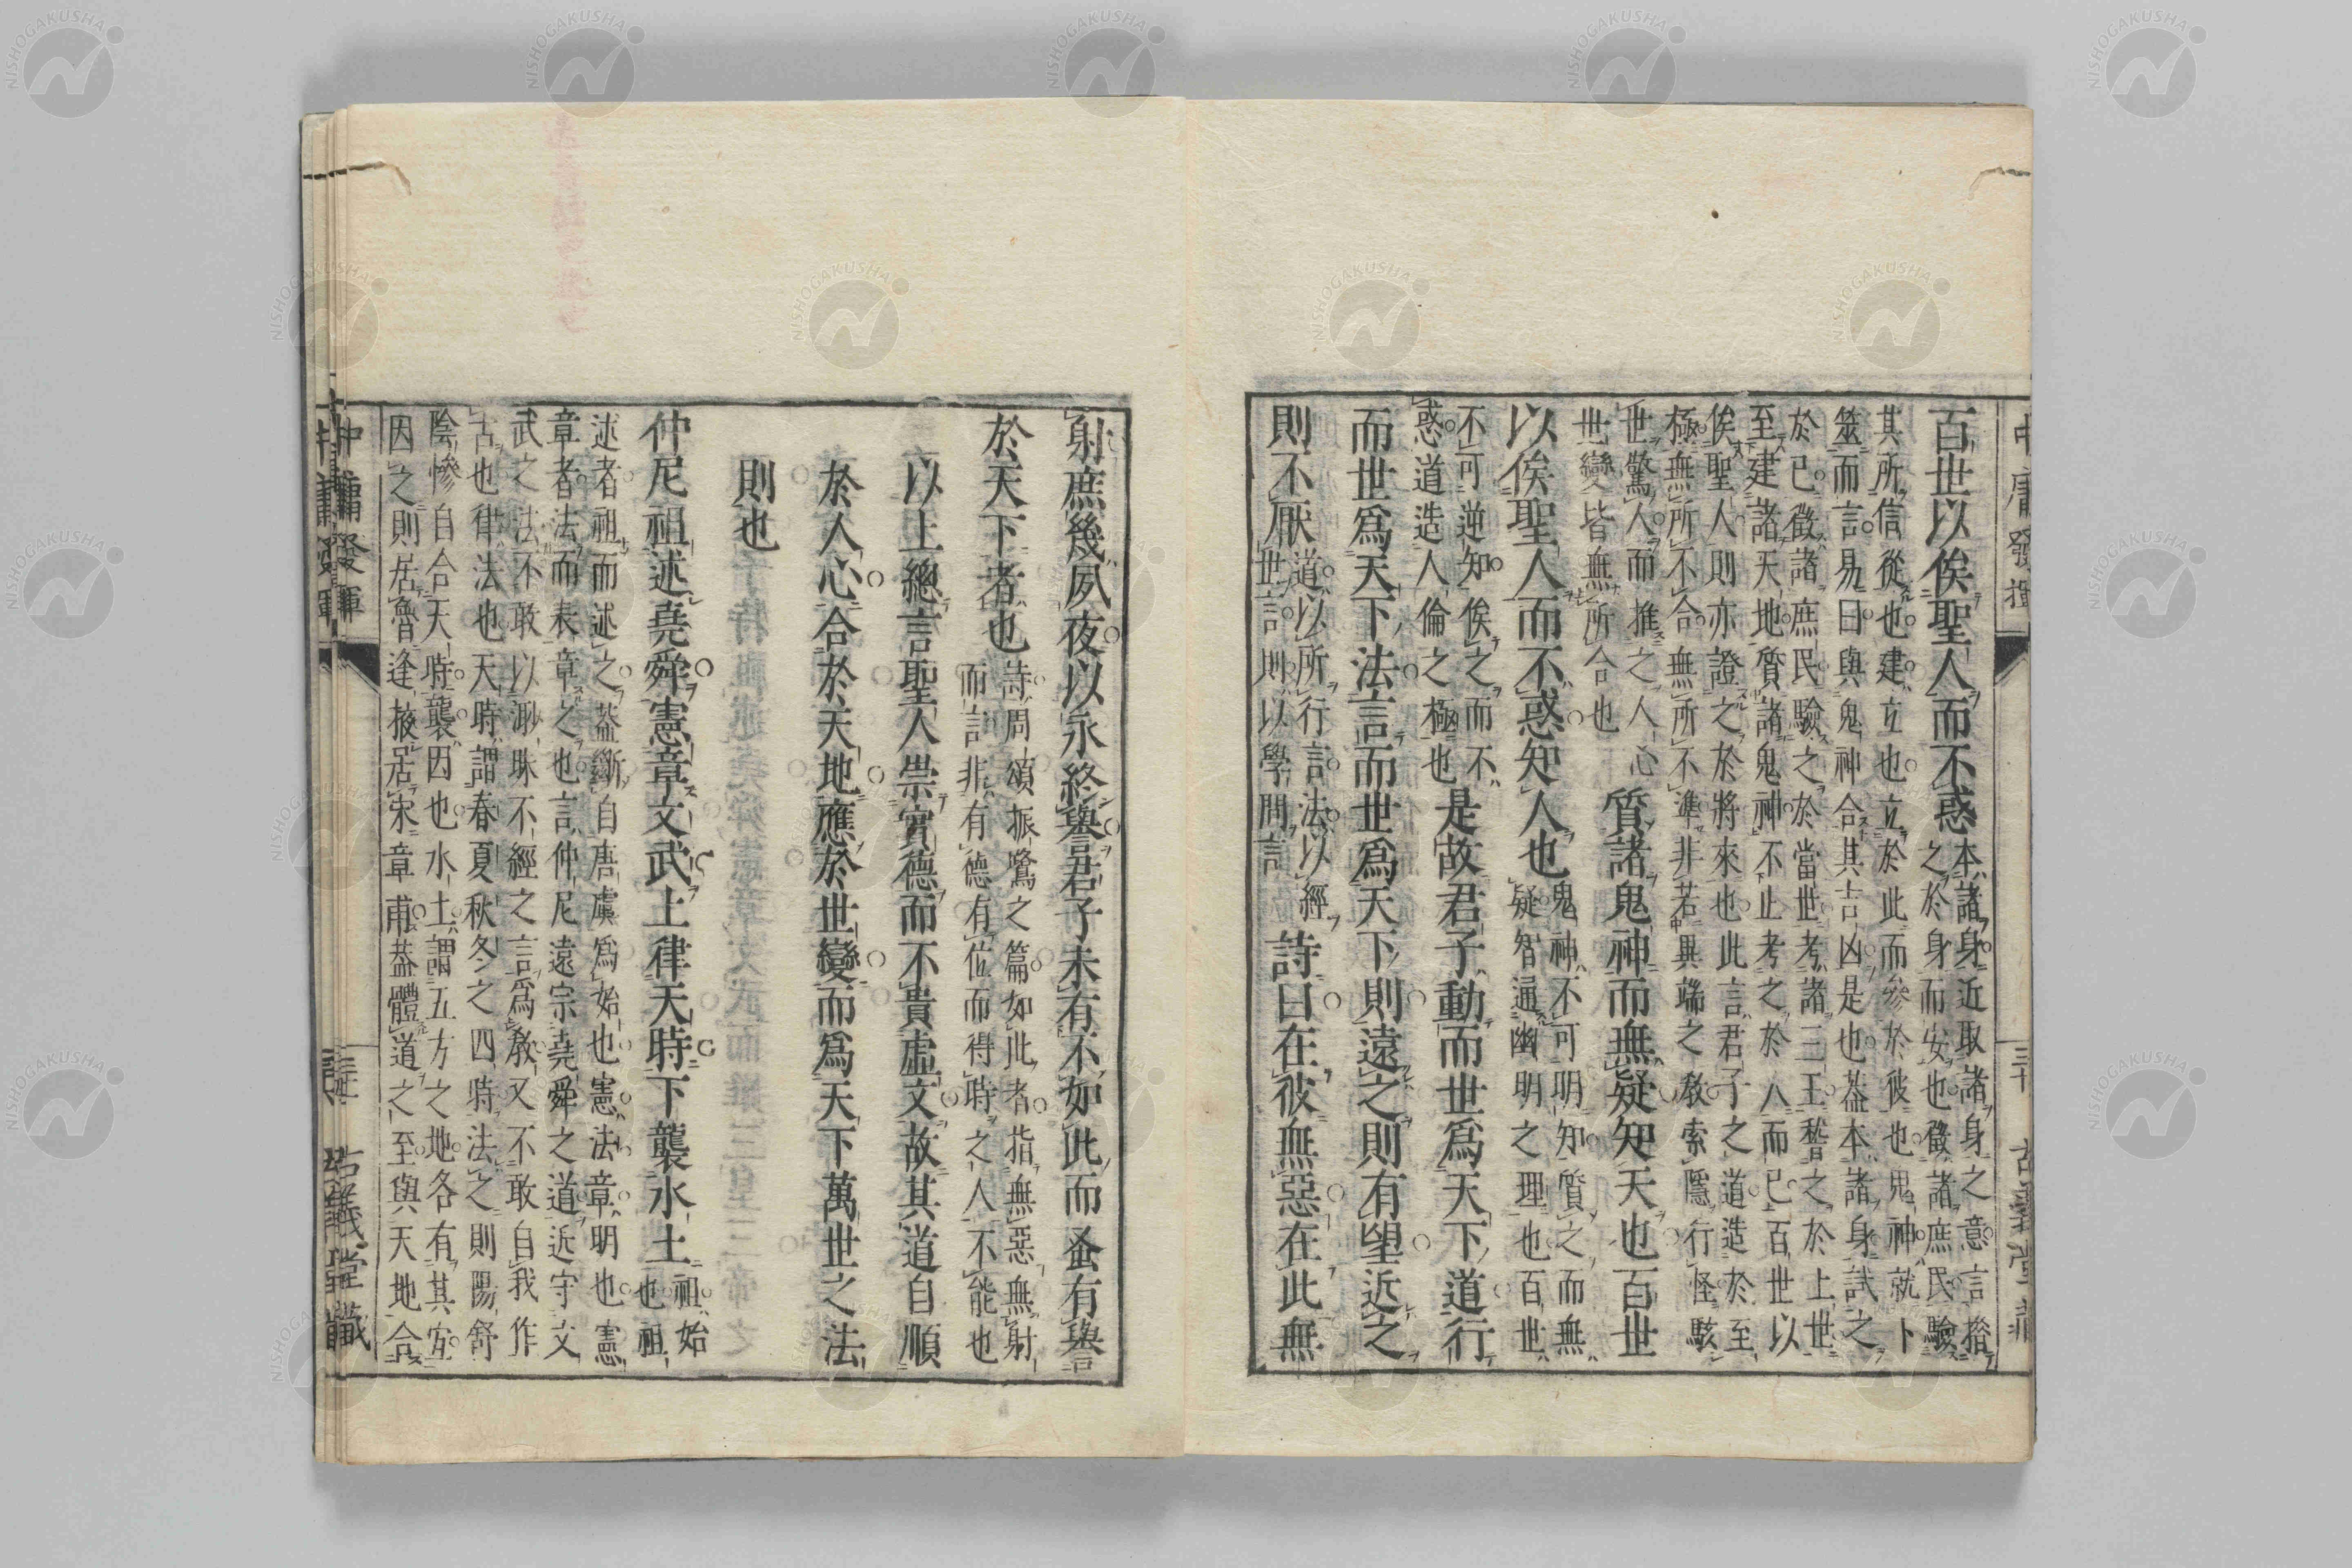 百世以俟聖人而不惑本諸身近取諸身之意言揆
之於身而安也徵諸庶民驗
其所信從也建立也立於此而參於彼也鬼神就卜
筮而言易曰與鬼神合其吉凶是也葢本諸身試之
於己徵諸庶民驗之於當世考諸三王稽之於上世
至建諸天地質諸鬼神不止考之於人而已百世以
俟聖人則亦證之於將來也此言君子之道造於至
極無所不合無所不準非若異端之教索隱行怪駭
世驚人而推之人心
世變皆無所合也
質諸鬼神而無疑知天也百世
以俟聖人而不惑知人也鬼神不可明知質之而無
疑智通幽明之理也百世
不可逆知俟之而不
惑道造人倫之極也
是故君子動而世爲天下道行
而世爲天下法言而世爲天下則遠之則有望近之
則不厭道以所行言法以經
世言則以學問言
詩曰在彼無惡在此無
射庶幾夙夜以永終譽君子未有不如此而蚤有譽
於天下者也詩周頌振鷺之篇如此者指無惡無射
而言非有德有位而得時之人不能也
以上總言聖人崇實德而不貴虛文故其道自順
於人心合於天地應於世變而爲天下萬世之法
則也
仲尼祖述堯舜憲章文武上律天時下襲水土祖始
也祖
述者祖而述之葢斷自唐虞爲始也憲法章明也憲
章者法而表章之也言仲尼遠宗堯舜之道近守文
武之法不敢以渺昧不經之言爲教又不敢自我作
古也律法也天時謂春夏秋冬之四時法之則陽舒
陰慘自合天時襲因也水土謂五方之地各有其宜
因之則居魯逢掖居宋章甫葢體道之至與天地合
中庸發揮
古義堂藏